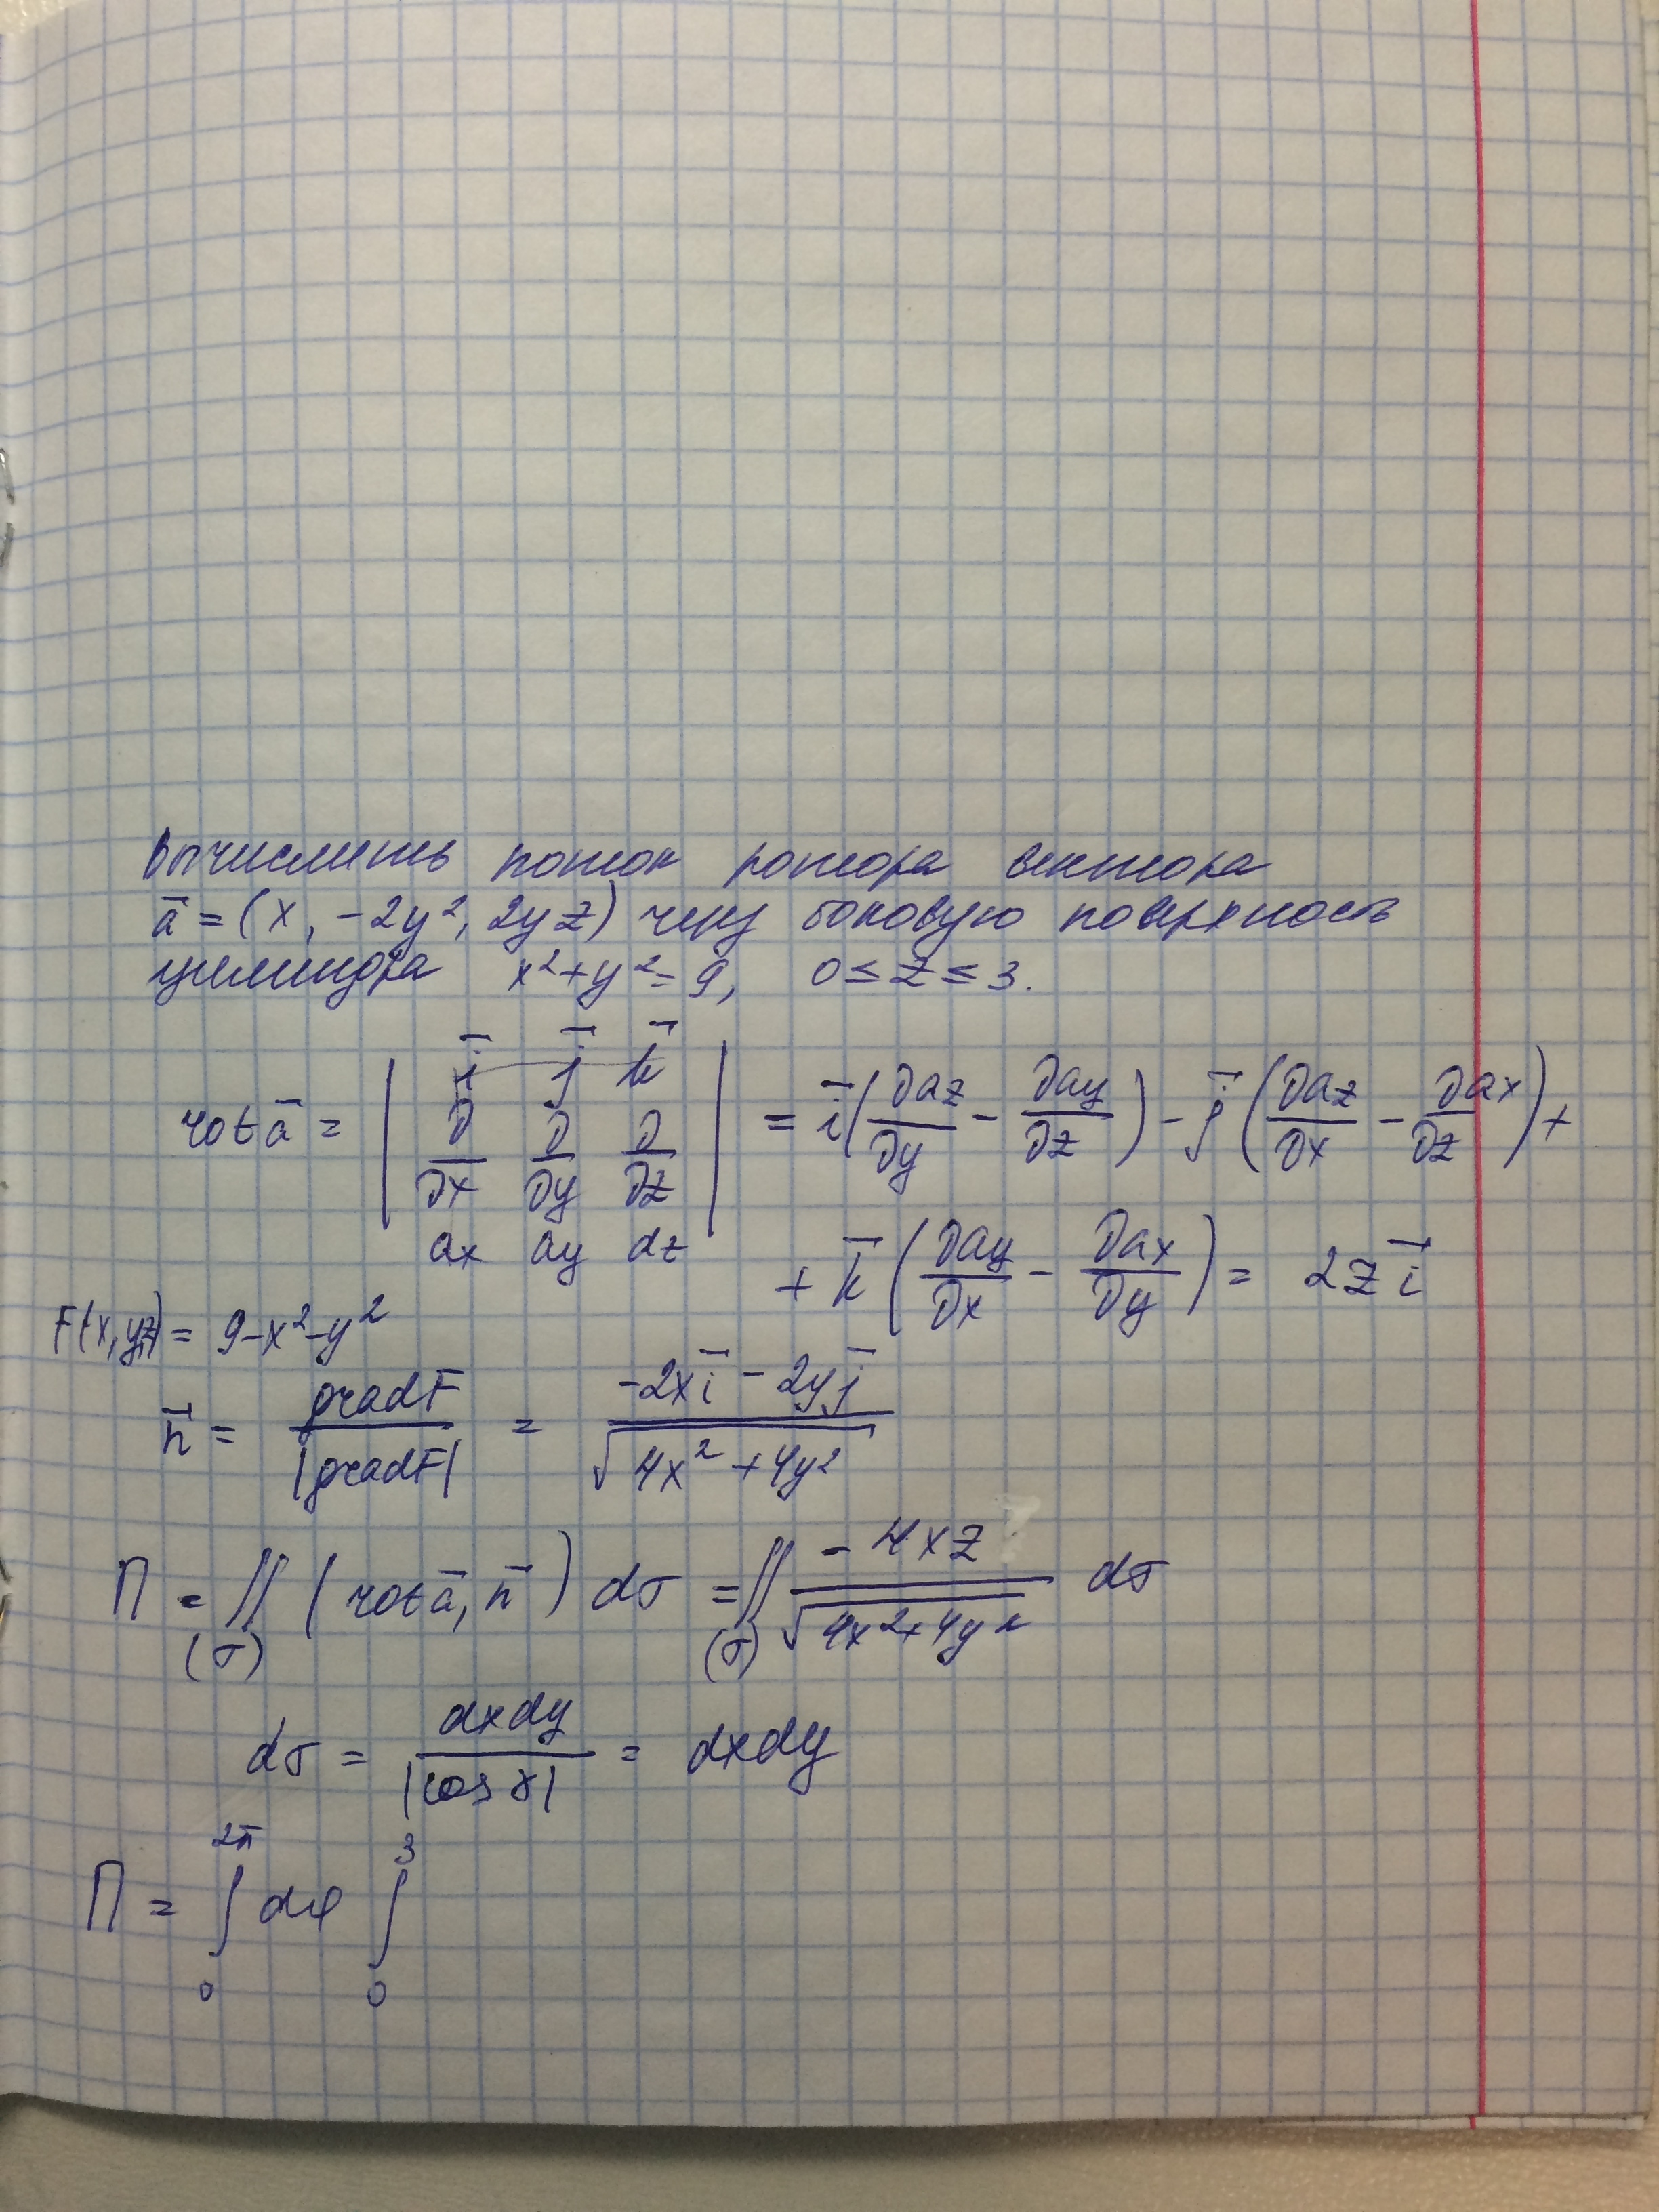 Вычислить поток ротора вектора
a̅ = (x, -2y², 2yz) через боковую поверхность
цилиндра x² + y² = 9, 0 ≤ z ≤ 3.
rot a̅ = | i̅ j̅ k̅ ; ∂/∂x ∂/∂y ∂/∂z ; ax ay az | = i̅(∂az/∂y - ∂ay/∂z) - j̅(∂az/∂x - ∂ax/∂z) +
+ k̅(∂ay/∂x - ∂ax/∂y) = 2z i̅
F(x,y,z) = 9-x²-y²
n̅ = gradF/|gradF| = (-2x i̅ - 2y j̅)/√(4x² + 4y²)
П = ∬(σ) (rot a̅, n̅) dσ = ∬(σ) -4xz/√(4x²+4y²) dσ
dσ = dxdy/|cos γ| = dxdy
П = ∫₀^2π dφ ∫₀^3